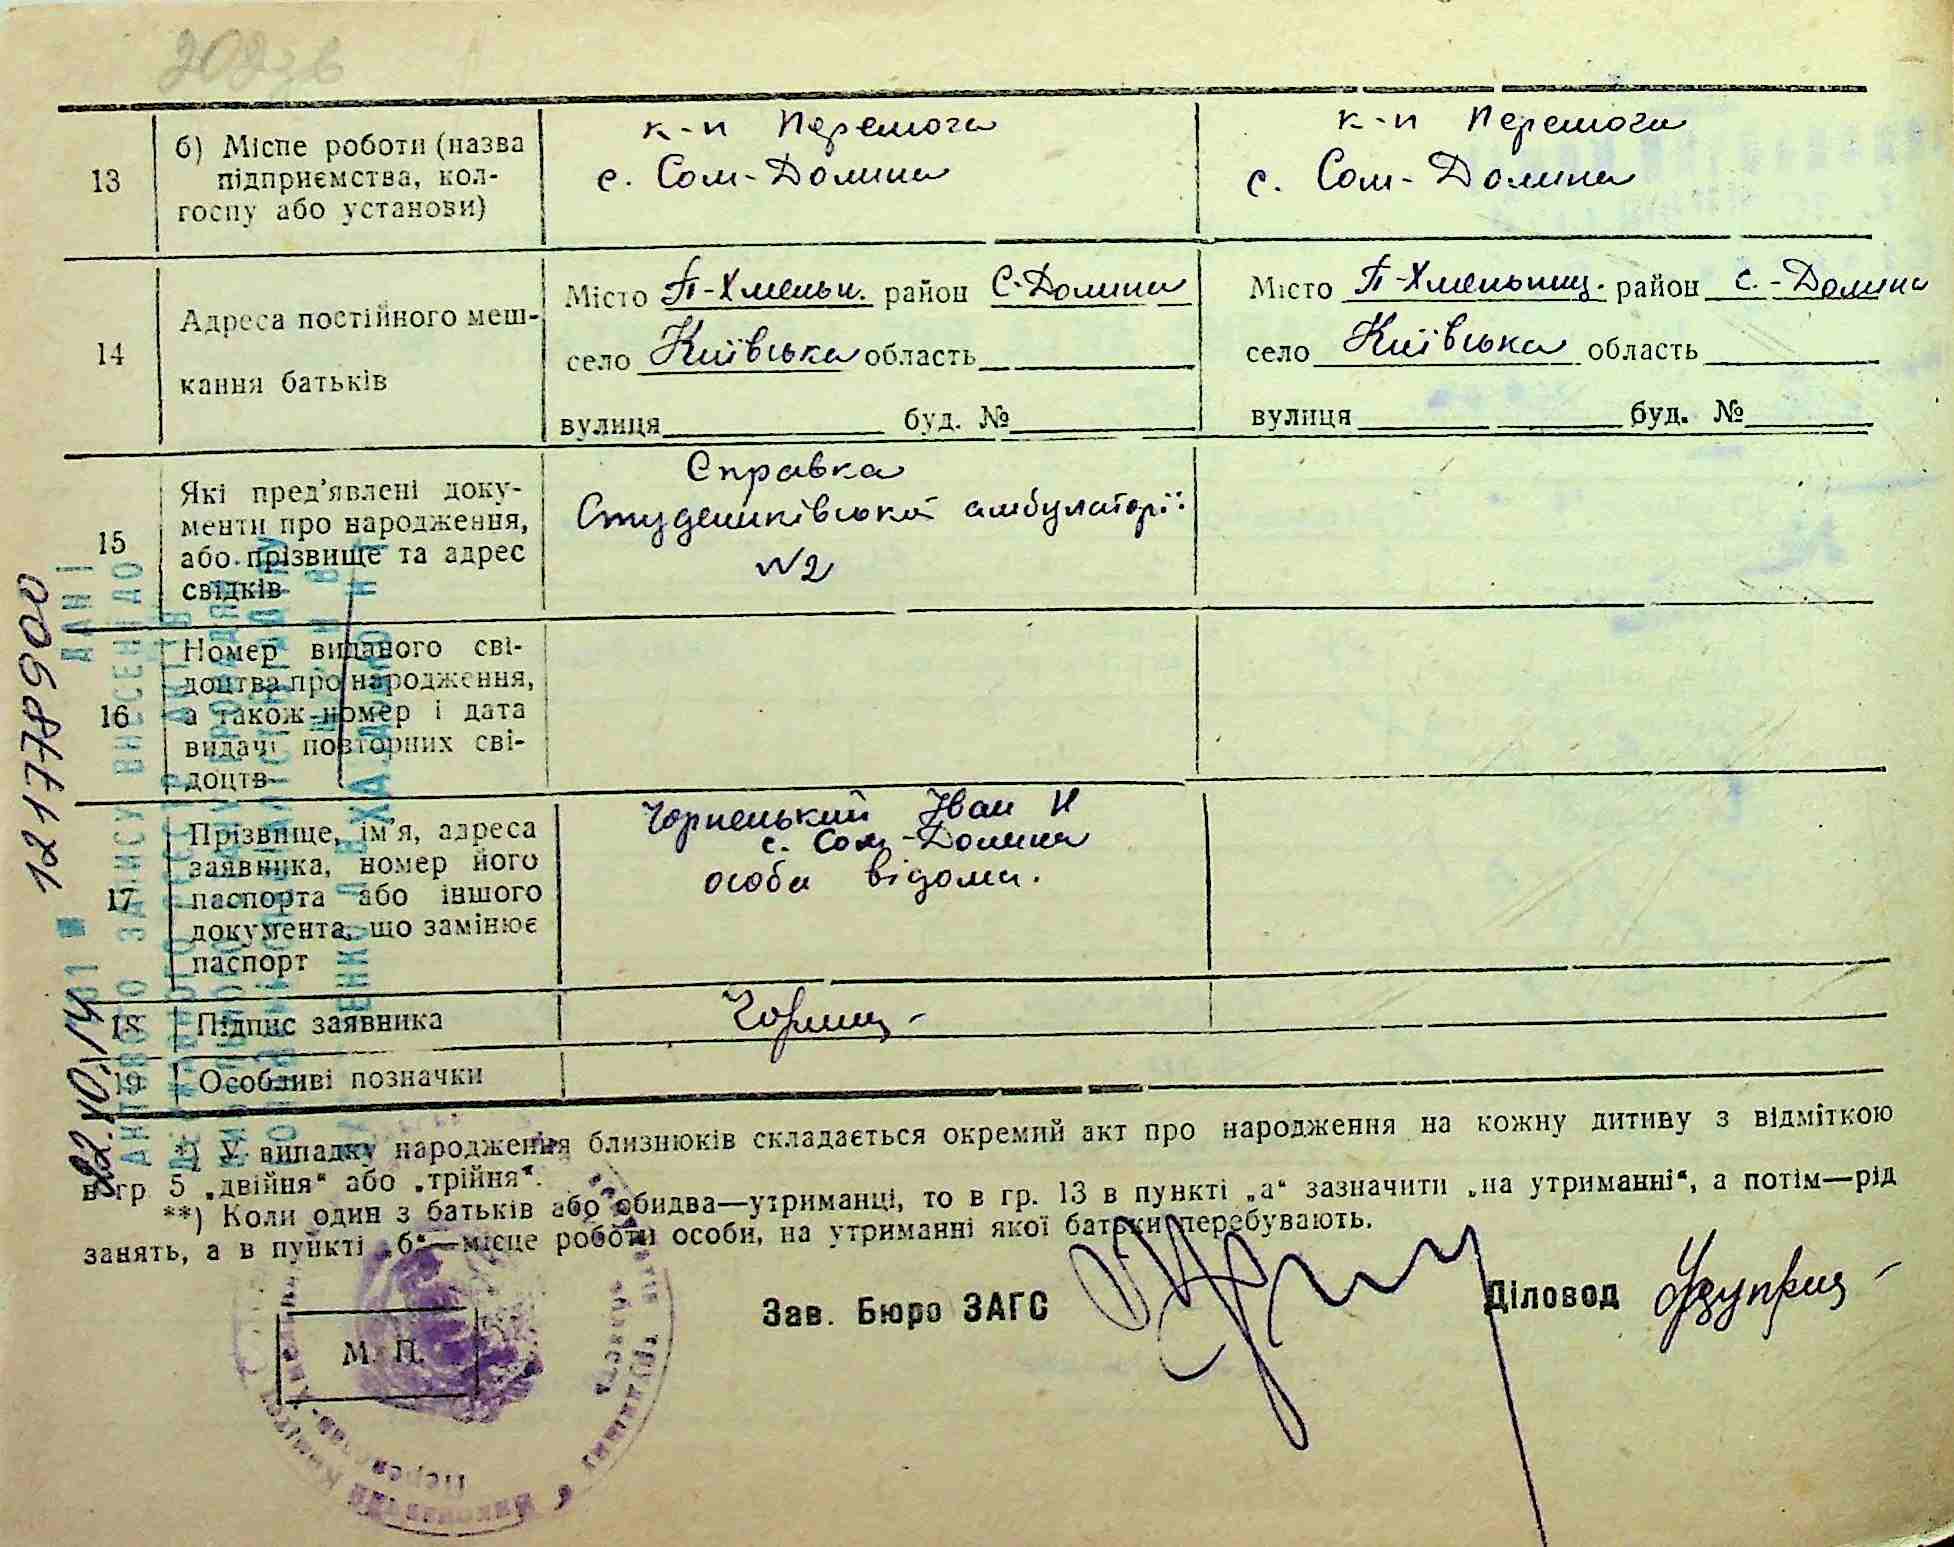 13
б) Місце роботи (назва
підприємства, кол-
госпу або установи)
к-п Перемога
с. Сом-Долина
к-п Перемога
с. Сом-Долина
14
Адреса постійного меш-
кання батьків
Місто П-Хмельн. район С-Долина
село Київська область
вулиця буд. №
Місто П-Хмельниц. район С.-Долина
село Київська область
вулиця буд. №
15
Які пред'явлені доку-
менти про народження,
або прізвище та адрес
свідків
Справка
амбулаторії
N2
16
Номер виданого сві-
доцтва про народження,
а також номер і дата
видачі повторних сві-
доцтв
17
Прізвище, ім'я, адреса
заявника, номер його
паспорта або іншого
документа, що замінює
паспорт
Чорненький Іван И
с. Сом-Долина
особа відома.
18
Підпис заявника
19
Особливі позначки
*) У випадку народження близнюків складається окремий акт про народження на кожну дитину з відміткою
в гр 5 „двійня“ або „трійня“.
**) Коли один з батьків або обидва—утриманці, то в гр. 13 в пункті „а“ зазначити „на утриманні“, а потім—рід
занять, а в пункті „б“—місце роботи особи, на утриманні якої батьки перебувають.
Зав. Бюро ЗАГС
Діловод
М. П.
ДАНІ
АКТОВОГО ЗАПИСУ ВНЕСЕНІ ДО
22.10.14 121778900